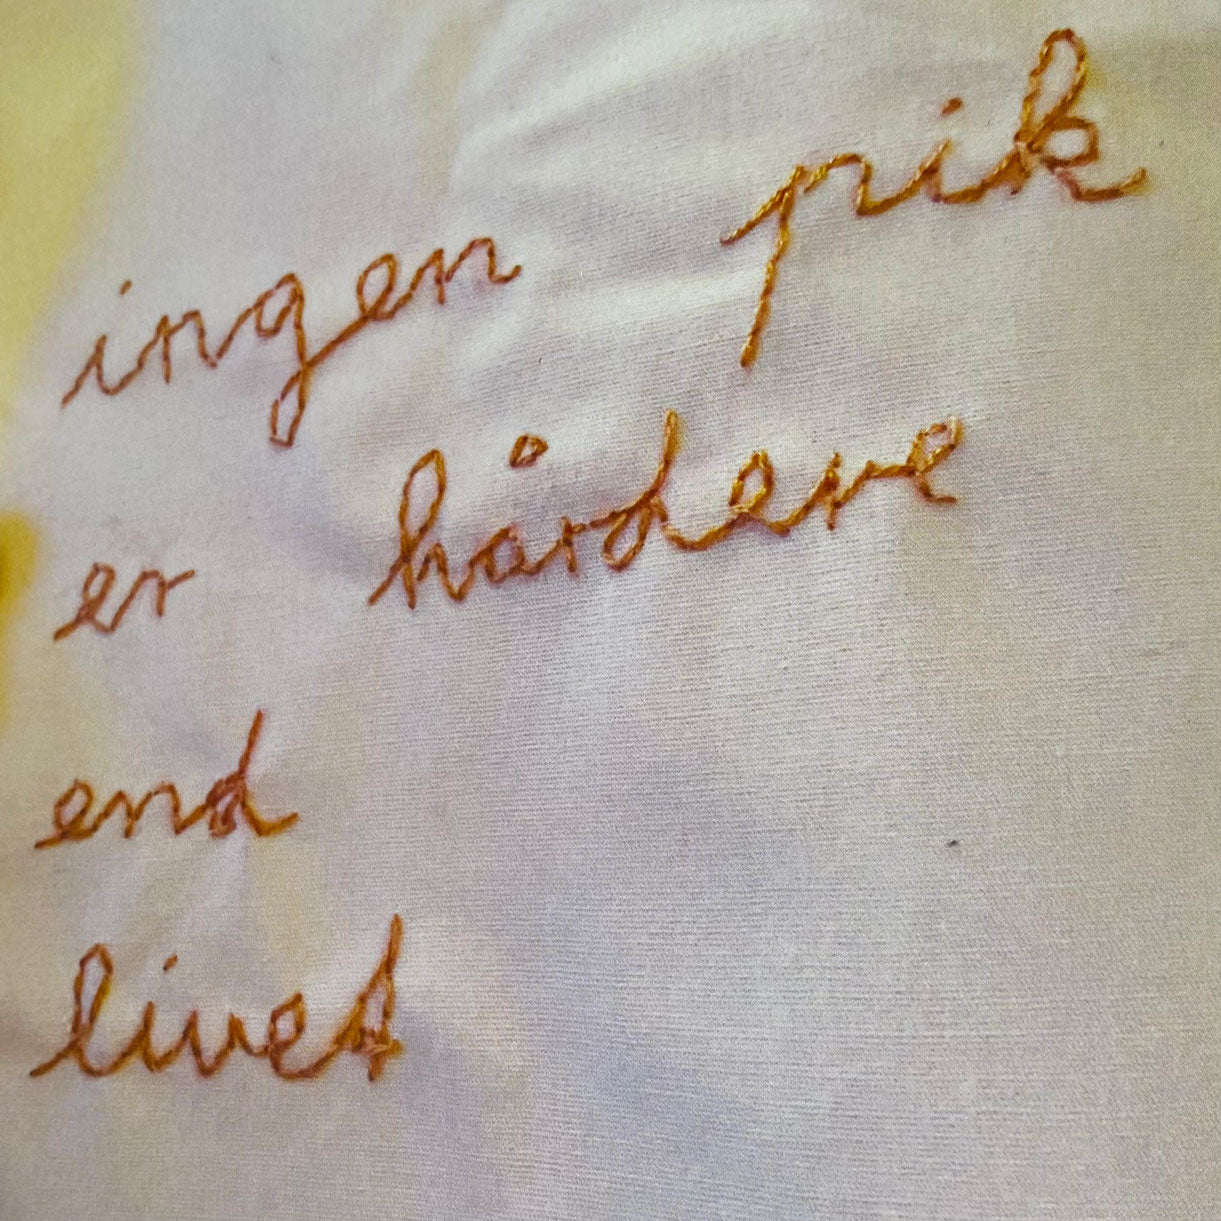 ingen pik
er hårdere
end
livet